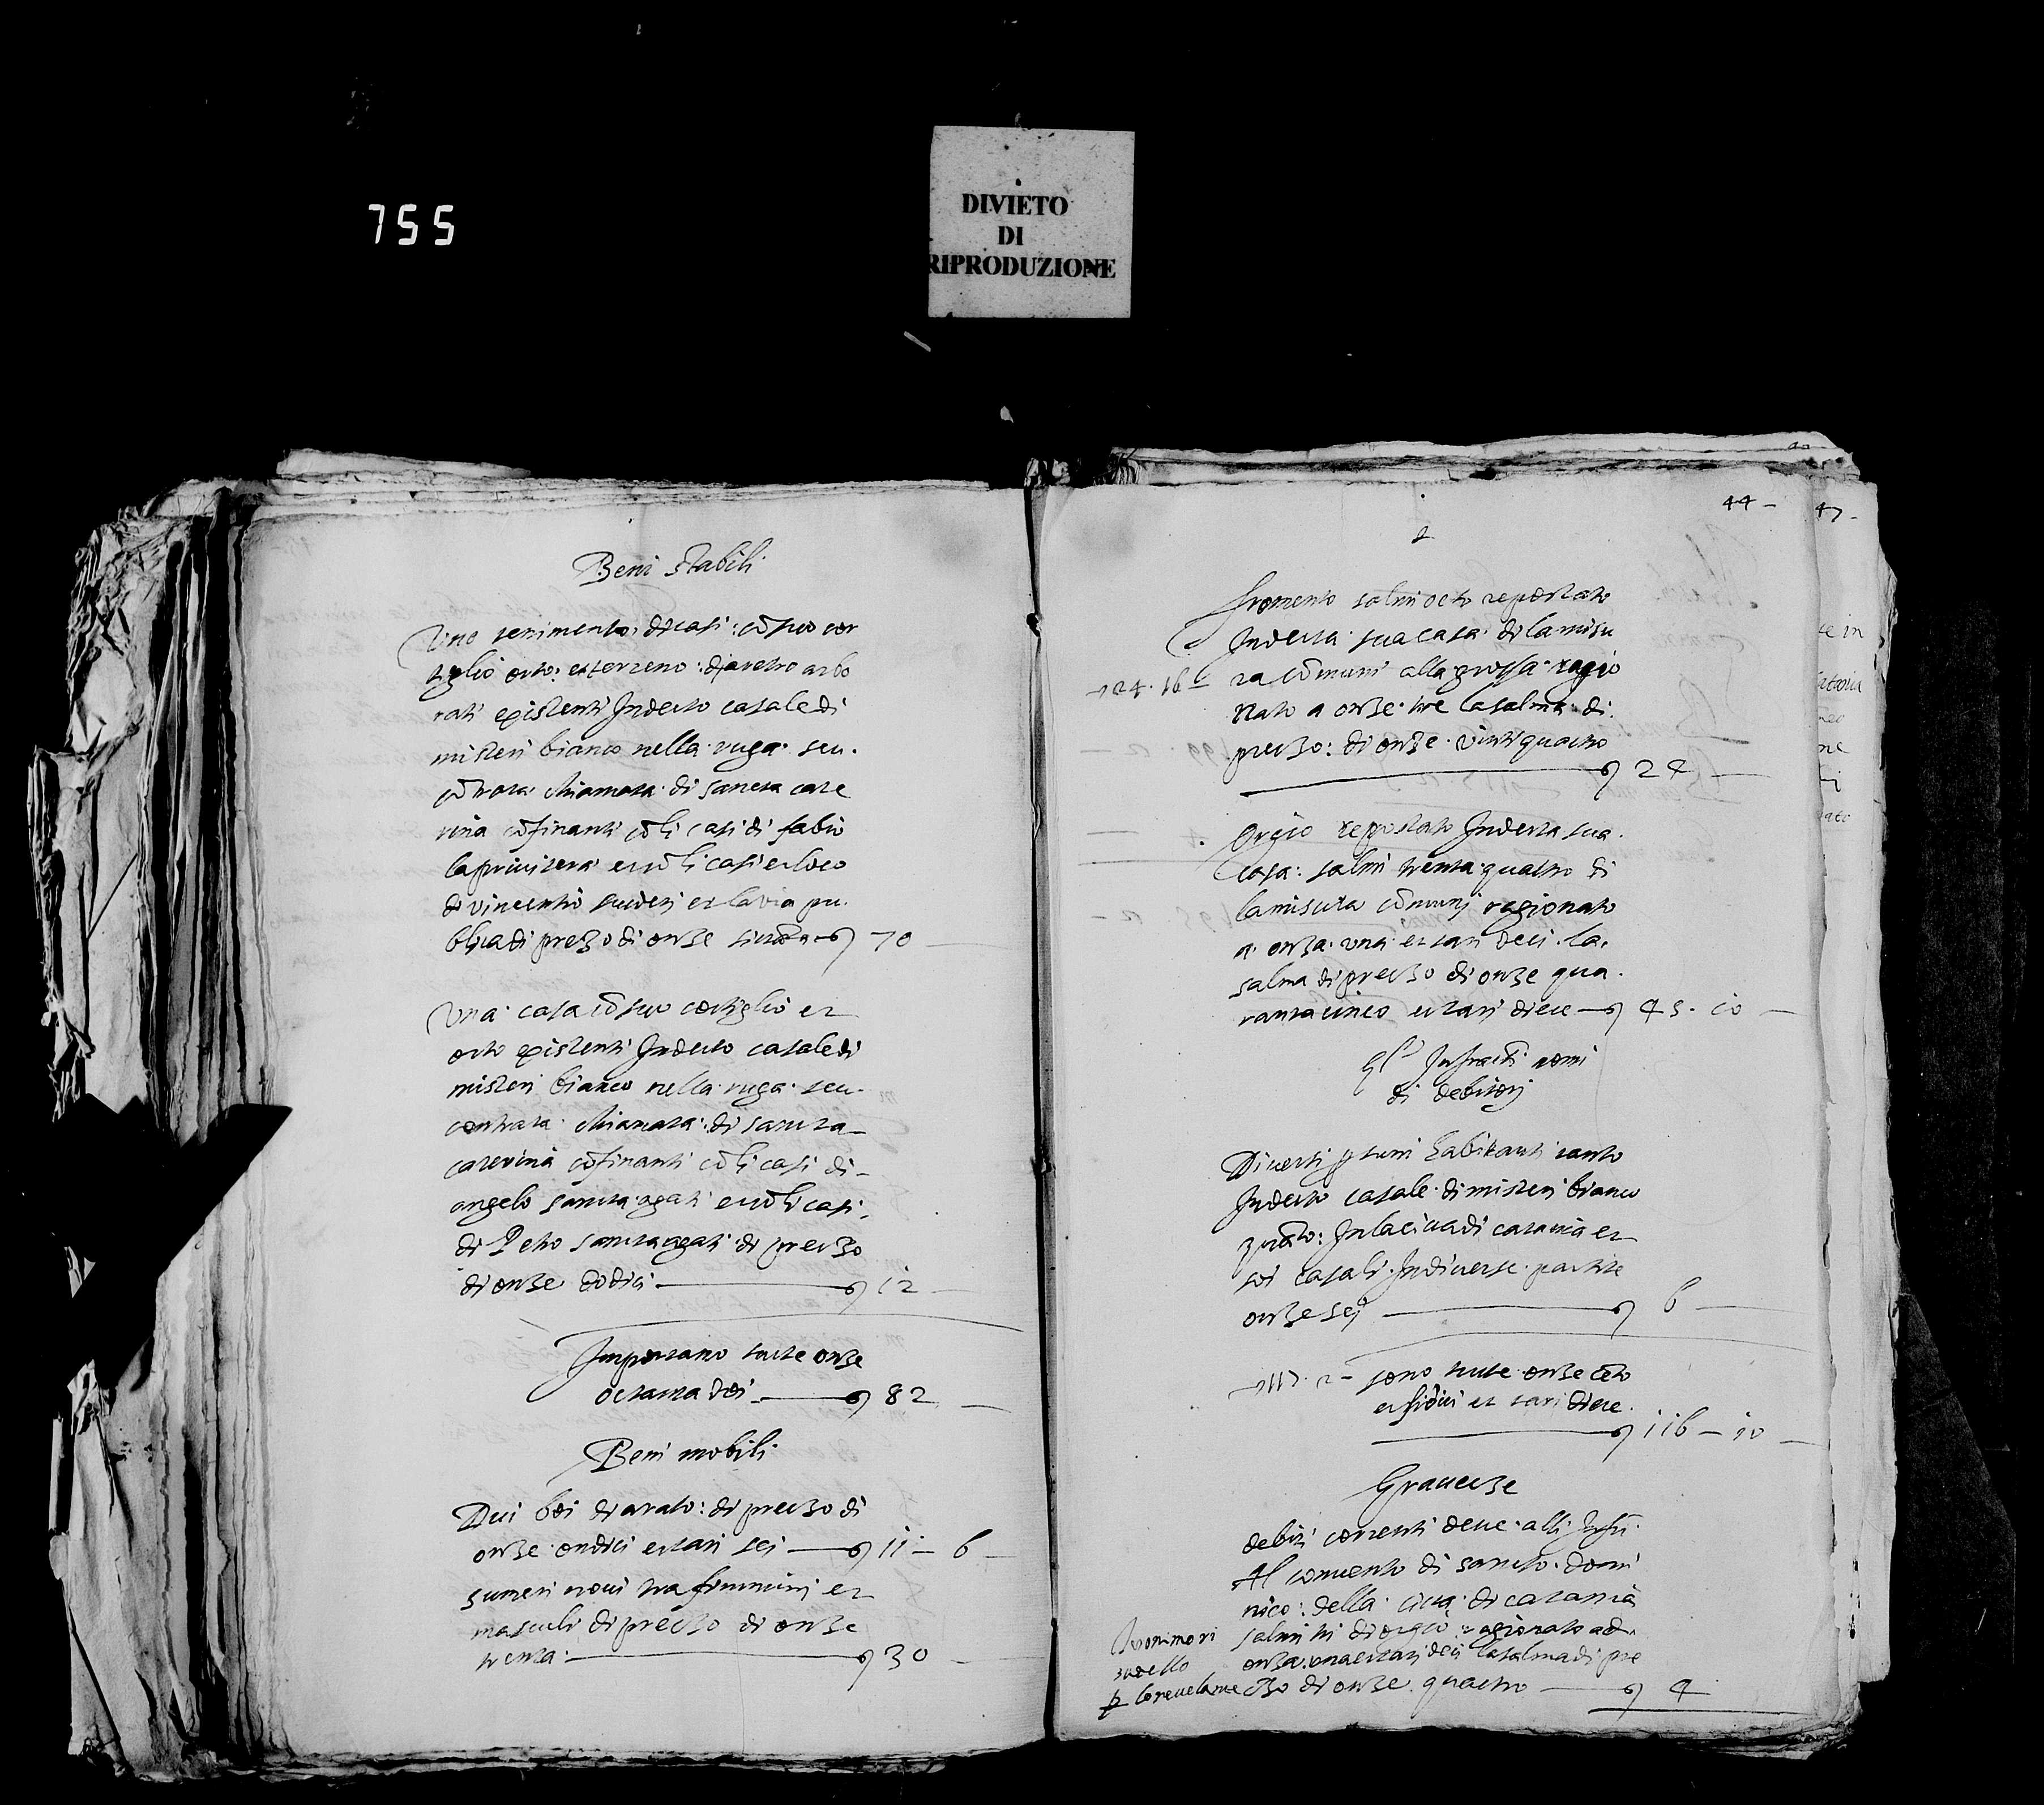 755
DIVIETO
DI
RIPRODUZIONE
Beni stabili
Uno tenimento di casi: cō suo cor
tiglio orto: et terreno: di aretro arbo
rati existenti In dicto casale di
misteri bianco nella ruga seu
cōtrata chiamata di sancta cate
rina cōfinanti cō li casi di fabio
la privitera et cō li casi et loco
di vincentio et la via pu
blica di prezo di onze 70
Una casa cō suo cortiglio et
orto existenti In dicto casale di
misteri bianco nella ruga seu
contrata chiamata di sancta
caterina cōfinanti cō li casi di
angelo sancta agati et cō li casi
di Petro sanctagati di preczo
di onze dodici 12
Importano tucte onze
octanta doi 82
Beni mobili
Dui boi di arato: di preczo di
onze ondici et tari sei 11 - 6
sumeri novi tra fimmini et
masculi di preczo di onze
trenta 30
44
47
fromento salmi octo repostato
In dicta sua casa di la misu
24. 16 ra cōmuni alla grossa ragio
nato a onze tre la salma di
preczo: di onze vinti quactro
24
Orgio repostato In dicta sua
casa: salmi trenta quactro di
la misura cōmuni ragionato
a onza una et tari deci la
salma di preczo di onze qua
ranta cinco et tari diece 45. 10
Infracti nomi
di debitori
Diversi ꝑsuni habitanti tanto
In dicto casale di misteri bianco
quāto: In la cita di catania et
soi casali In diverse partite
onze sei 6
sono tucte onze cēto
et sidici et tari diece
116 - 10
Gravecze
debiti correnti deve alli Infrī
Al convento di sancto domi
nico: della cita di catania
salmi tri di orgio ragionato ad
onza una et tari deci la salma di pre
czo di onze quactro 4